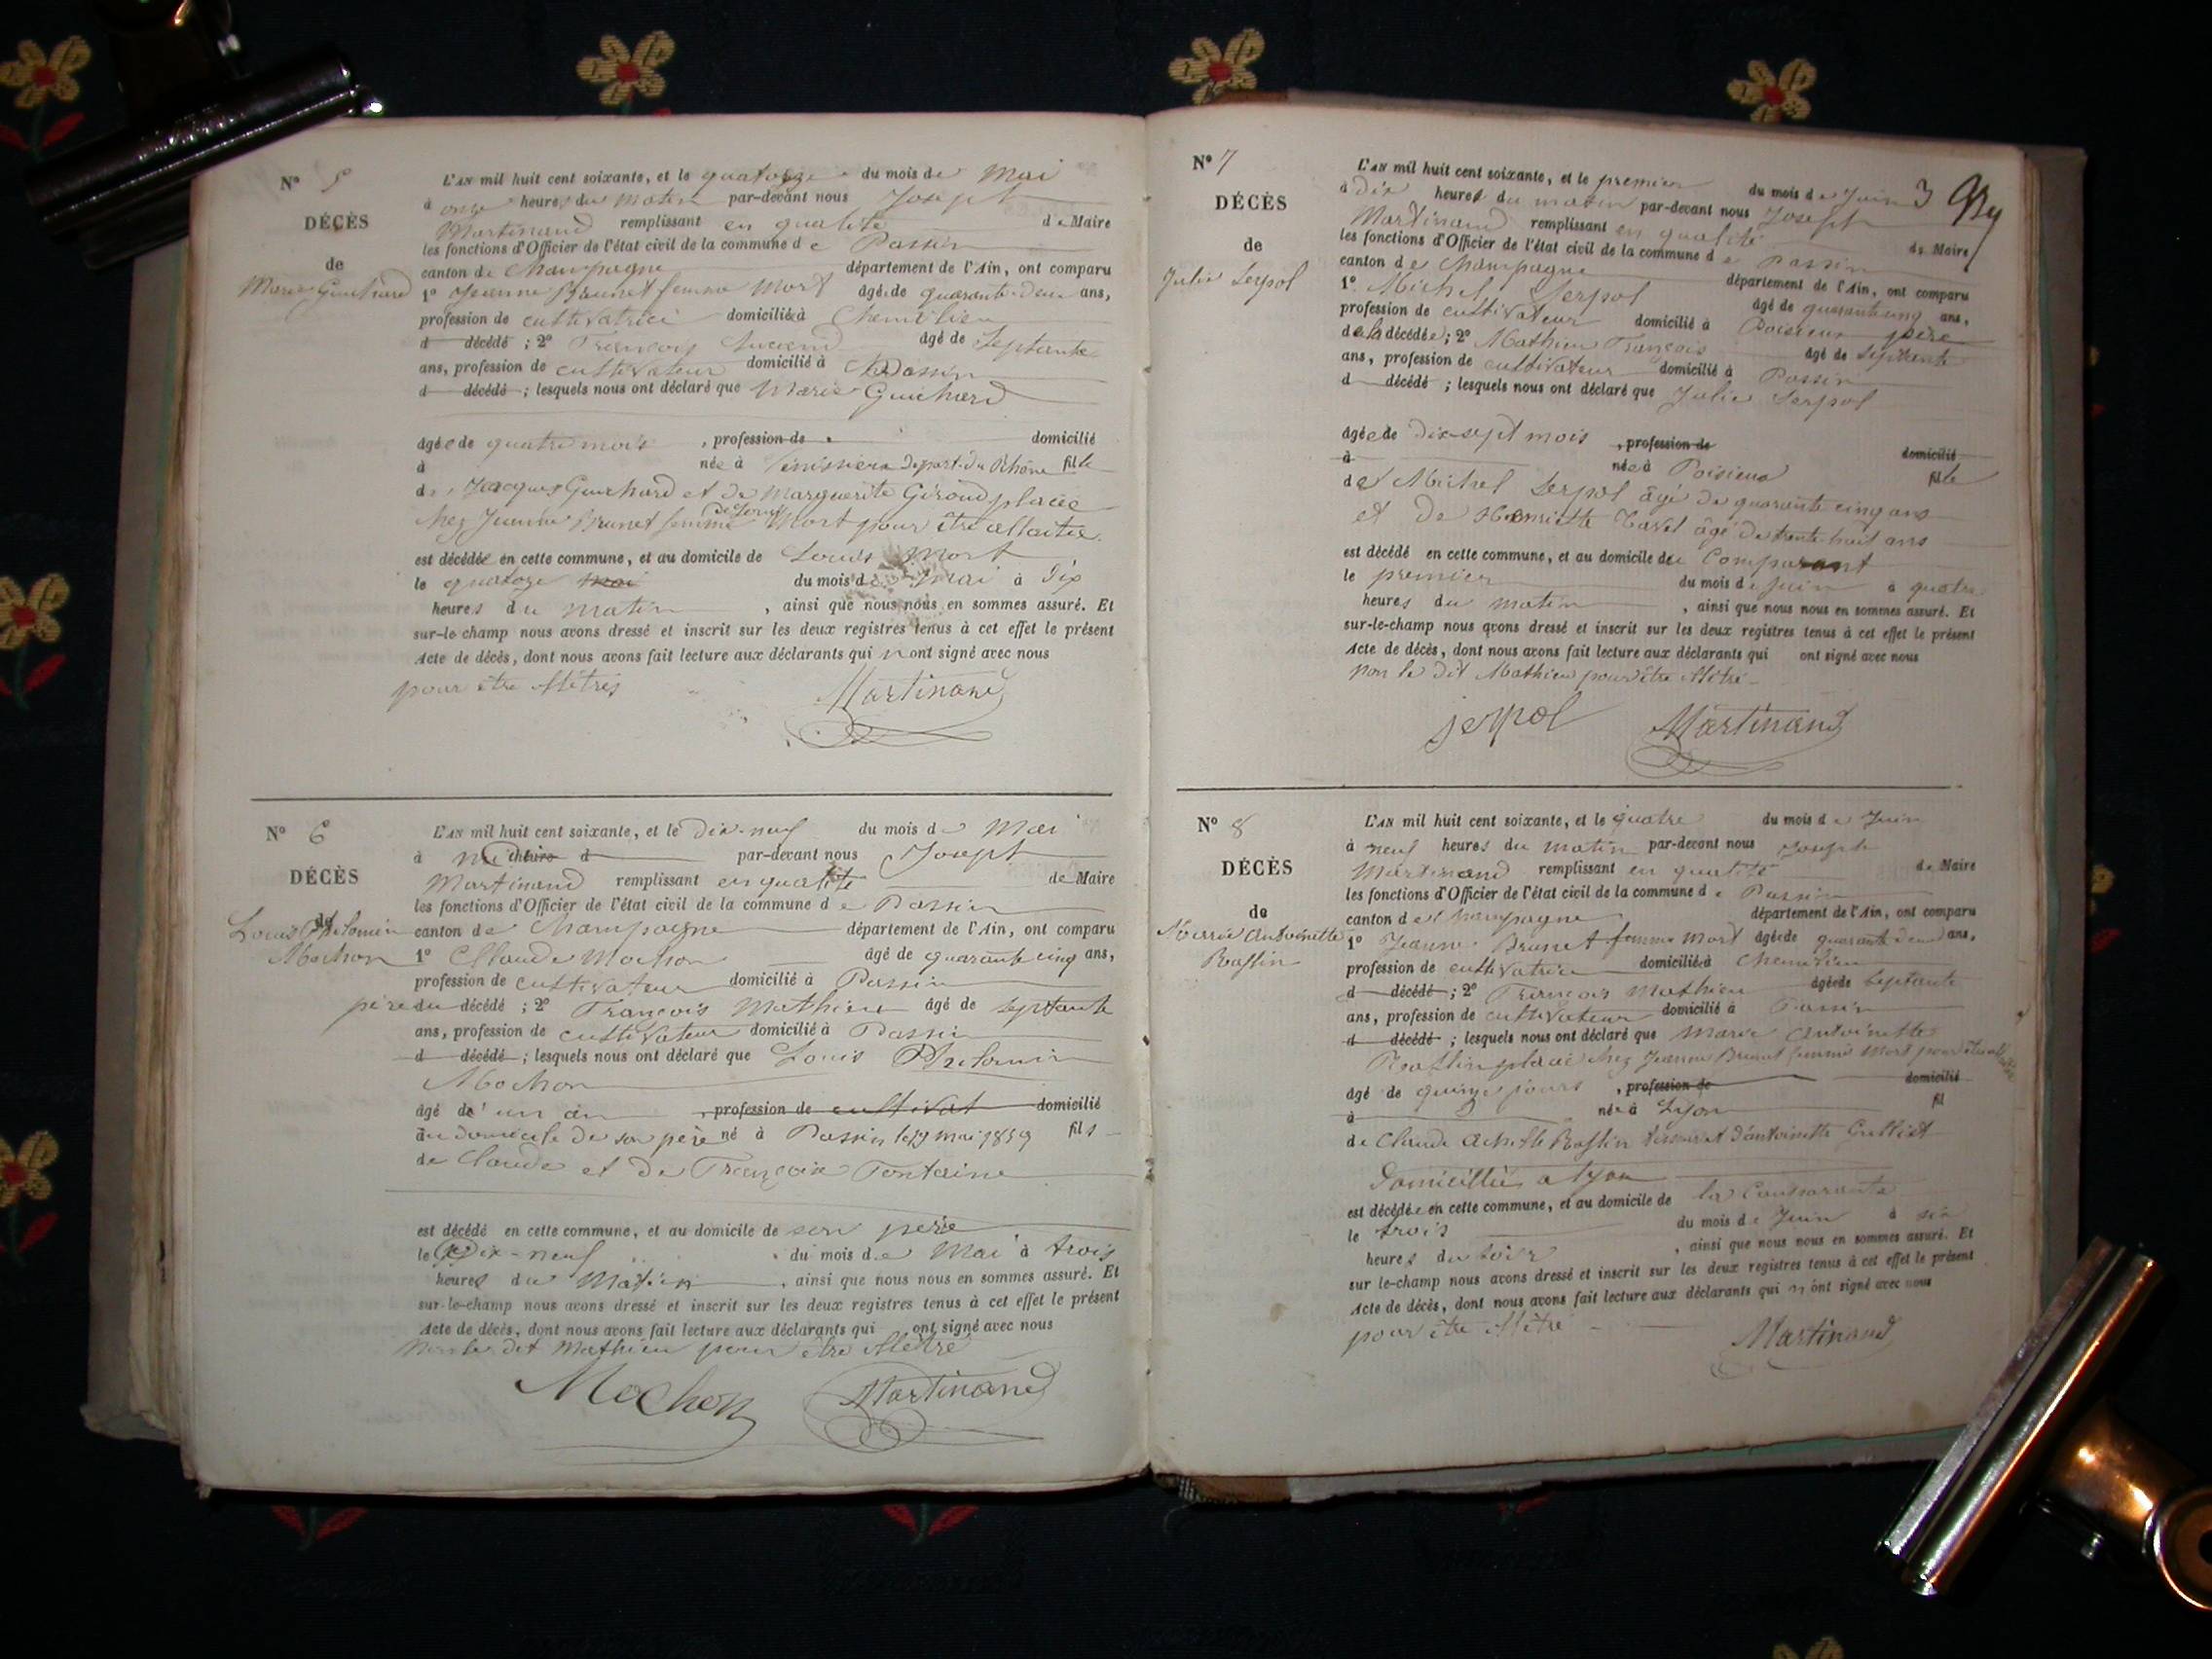 N° 5
DÉCÈS
de
Marie Guichard
L'AN mil huit cent soixante, et le quatorze du mois de Mai
à onze heures du matin par-devant nous Joseph
Martinand remplissant en qualité de Maire
les fonctions d'Officier de l'état civil de la commune de Passin
canton de Champagne département de l'Ain, ont comparu
1° Jeanne Brunet femme Mort âgée de quarante deux ans,
profession de cultivatrice domiciliée à Chemilieu
d décédé ; 2° François âgé de Septante
ans, profession de cultivateur domicilié à Passin
d décédé ; lesquels nous ont déclaré que Marie Guichard
âgée de quatre mois , profession de domicilié
à née à Départ. du Rhône fille
de Jacques Guichard et de Marguerite Giroud placée
chez Jeanne Brunet femme de Louis Mort pour être allaitée
est décédée en cette commune, et au domicile de Louis Mort
le quatorze mai du mois de mai à Dix
heures du matin , ainsi que nous nous en sommes assuré. Et
sur-le champ nous avons dressé et inscrit sur les deux registres tenus à cet effet le présent
Acte de décès, dont nous avons fait lecture aux déclarants qui n ont signé avec nous
pour être illétrés
Martinand
N° 6
DÉCÈS
de
Louis Philomin
Mochon
L'AN mil huit cent soixante, et le Dix-neuf du mois de Mai
à midi heure d par-devant nous Joseph
Martinand remplissant en qualité de Maire
les fonctions d'Officier de l'état civil de la commune de Passin
canton de Champagne département de l'Ain, ont comparu
1° Claude Mochon âgé de quarante cinq ans,
profession de cultivateur domicilié à Passin
père du décédé ; 2° François Mathieu âgé de septante
ans, profession de cultivateur domicilié à Passin
d décédé ; lesquels nous ont déclaré que Louis Philomin
Mochon
âgé de un an , profession de cultivat domicilié
au domicile de son père né à Passin le 19 mai 1859 fils
de Claude et de Françoise Fontaine
est décédé en cette commune, et au domicile de son père
le Dix-neuf du mois de Mai à trois
heures du Matin , ainsi que nous nous en sommes assuré. Et
sur-le-champ nous avons dressé et inscrit sur les deux registres tenus à cet effet le présent
Acte de décès, dont nous avons fait lecture aux déclarants qui ont signé avec nous
non le dit Mathieu pour être illétré
Mochon Martinand
3
N° 7
DÉCÈS
de
Julie Serpol
L'AN mil huit cent soixante, et le premier du mois de Juin
à dix heures du matin par-devant nous Joseph
Martinand remplissant en qualité de Maire
les fonctions d'Officier de l'état civil de la commune de Passin
canton de Champagne département de l'Ain, ont comparu
1° Michel Serpol âgé de quarante cinq ans,
profession de cultivateur domicilié à Poisieux père
de la décédée ; 2° Mathieu François âgé de septante
ans, profession de cultivateur domicilié à Passin
d décédé ; lesquels nous ont déclaré que Julie Serpol
âgée de dix-sept mois , profession de domicilié
à née à Poisieux fille
de Michel Serpol âgé de quarante cinq ans
et de Henriette Tavel âgé de trente-huit ans
est décédé en cette commune, et au domicile du Comparant
le premier du mois de Juin à quatre
heures du matin , ainsi que nous nous en sommes assuré. Et
sur-le-champ nous avons dressé et inscrit sur les deux registres tenus à cet effet le présent
Acte de décès, dont nous avons fait lecture aux déclarants qui ont signé avec nous
non le dit Mathieu pour être illétré
serpol Martinand
N° 8
DÉCÈS
de
Marie Antoinette
Raflin
L'AN mil huit cent soixante, et le quatre du mois de Juin
à neuf heures du matin par-devant nous Joseph
Martinand remplissant en qualité de Maire
les fonctions d'Officier de l'état civil de la commune de Passin
canton de Champagne département de l'Ain, ont comparu
1° Jeanne Brunet femme Mort âgée de quarante deux ans,
profession de cultivatrice domiciliée à Chemilieu
d décédé ; 2° François Mathieu âgé de septante
ans, profession de cultivateur domicilié à Passin
d décédé ; lesquels nous ont déclaré que Marie Antoinette
Raflin placé chez Jeanne Brunet femme Mort pour être
âgé de quinze jours , profession de domicilié
à née à Lyon fil
de Claude Achille Raflin et d'antoinette
Domiciliés a Lyon
est décédée en cette commune, et au domicile de la Comparante
le trois du mois de Juin à six
heures du soir , ainsi que nous nous en sommes assuré. Et
sur le-champ nous avons dressé et inscrit sur les deux registres tenus à cet effet le présent
Acte de décès, dont nous avons fait lecture aux déclarants qui n ont signé avec nous
pour être illétré
Martinand